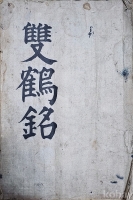 雙鶴銘